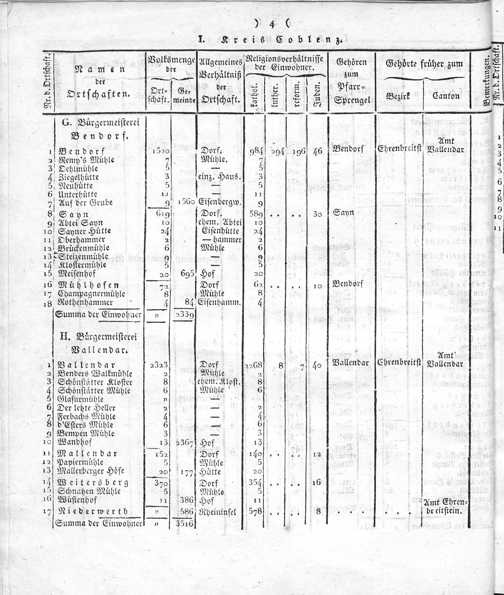 ) 4 (
I. Kreis Coblenz.
Nr. d. Ortschaft. Namen der Ortschaften. Volksmenge der Ortschaft. Gemeinde Allgemeines Verhältniß der Ortschaft. Religionsverhältnisse der Einwohner. kathol. luther. reform. Juden. Gehören zum Pfarr-Sprengel Gehörte früher zum Bezirk Canton Bemerkungen. Nr. d. Ortschaft.
G. Bürgermeisterei
Bendorf.
1 Bendorf 1520 Dorf. 984 294 196 46 Bendorf Ehrenbreitst Amt Vallendar
2 Remy's Mühle 7 Mühle. 7
3 Oehlmühle 5 — 5
4 Ziegelhütte 3 einz. Haus. 3
5 Neuhütte 5 — 5
6 Unterhütte 11 — 11
7 Auf der Grube 9 1560 Eisenbergw. 9
8 Sayn 619 Dorf. 589 . . . . 30 Sayn
9 Abtei Sayn 10 ehem. Abtei 10
10 Sayner Hütte 24 Eisenhütte 24
11 Oberhammer 2 — hammer 2
12 Brückenmühle 6 Mühle 6
13 Steizenmühle 9 — 9
14 Klostermühle 5 — 5
15 Meisenhof 20 695 Hof 20
16 Mühlhofen 72 Dorf 62 . . . . 10 Bendorf
17 Champagnermühle 8 Mühle 8
18 Rothenhammer 4 84 Eisenhamm. 4
Summa der Einwohner " 2339
H. Bürgermeisterei
Vallendar.
1 Vallendar 2323 Dorf 2268 8 7 40 Vallendar Ehrenbreitst Amt Vallendar
2 Benders Walkmühle 2 Mühle 2
3 Schönstätter Kloster 8 ehem. Klost. 8
4 Schönstätter Mühle 6 Mühle 6
5 Glasurmühle —
6 Der letzte Heller 2 — 2
7 Ferbachs Mühle 4 — 4
8 d'Esters Mühle 6 — 6
9 Bempen Mühle 3 — 3
10 Wandhof 13 2367 Hof 13
11 Mallendar 152 Dorf 140 . . . . 12
12 Papiermühle 5 Mühle 5
13 Mallerberger Höfe 20 177 Hütte 20
14 Weitersberg 370 Dorf 354 . . . . 16
15 Schnatzen Mühle 5 Mühle 5
16 Wüstenhof 11 386 Hof 11
17 Niederwerth " 586 Rheininsel 578 . . . . 8 Amt Ehrenbreitstein.
Summa der Einwohner " 3516